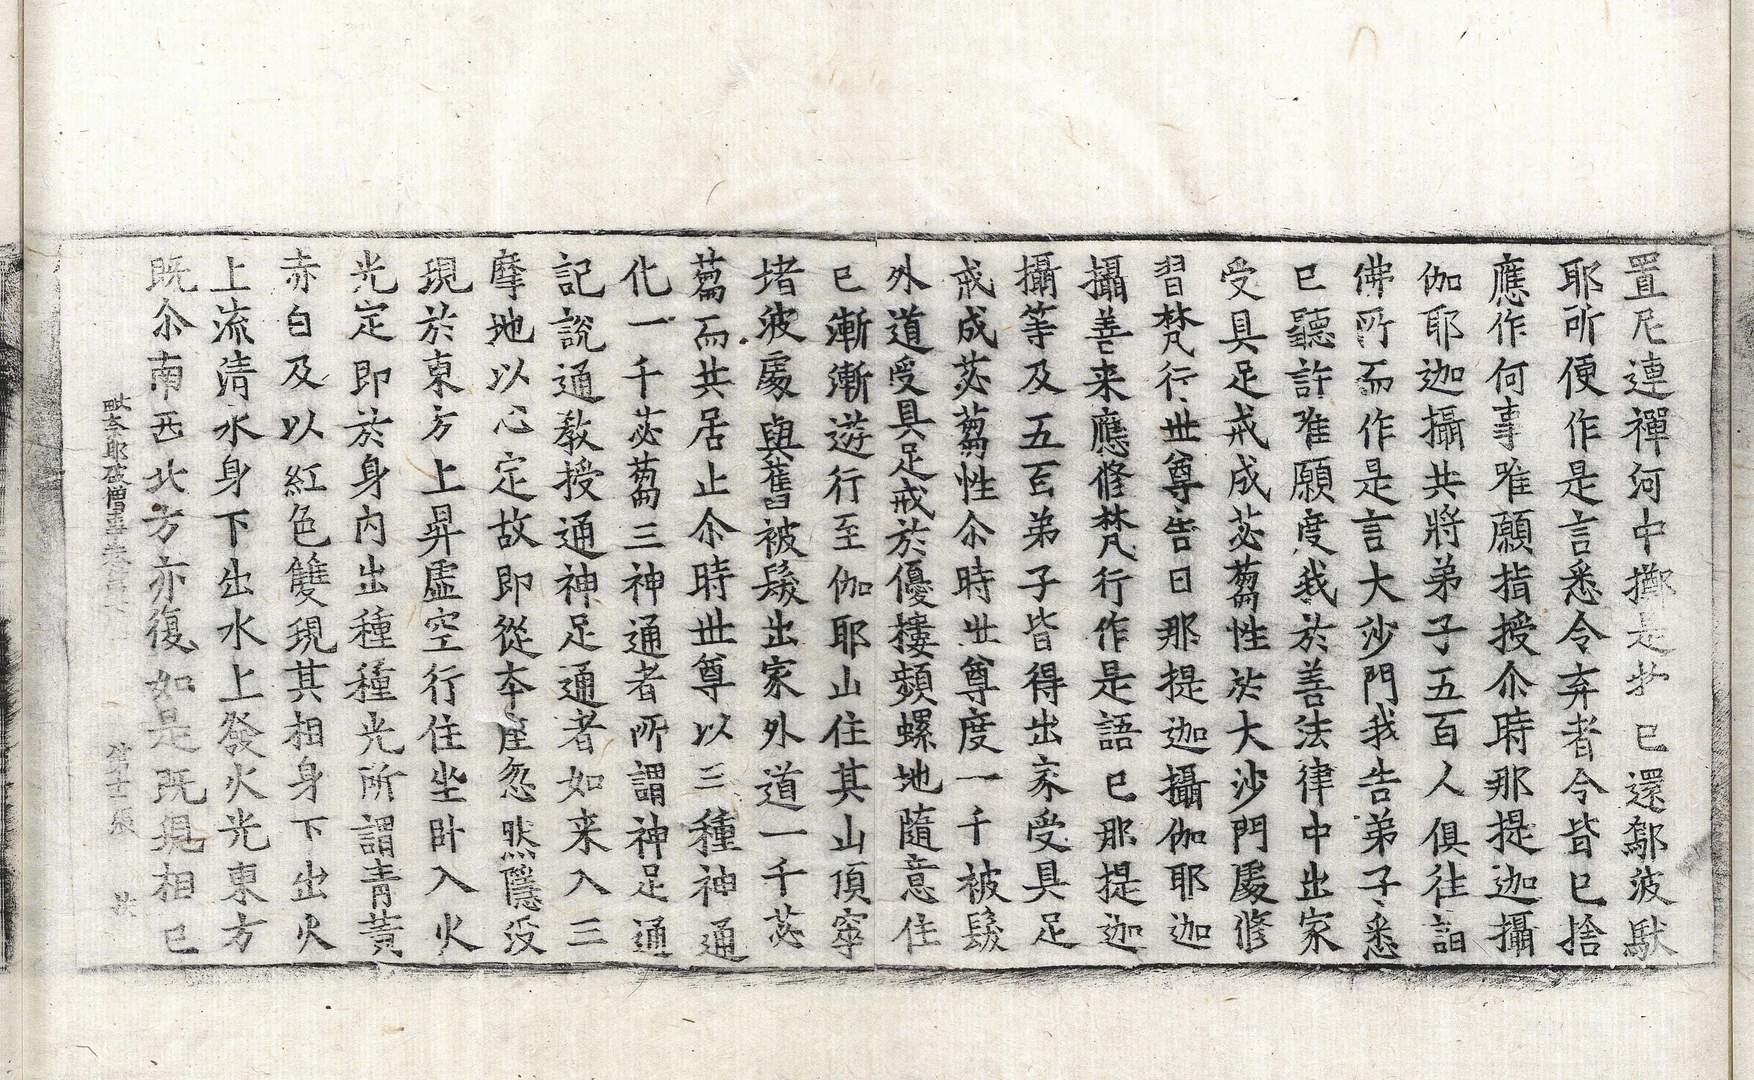 置尼連禪河中擲走物已還鄔波馱
耶所便作是言悉令弃者今皆已捨
應作何事唯願指授尒時那提迦攝
伽耶迦攝共將弟子五百人俱往詣
佛所而作是言大沙門我告弟子悉
已聽許唯願度我於善法律中出家
受具足戒成苾蒭性於大沙門處修
習梵行世尊告曰那提迦攝伽耶迦
攝善来應修梵行作是語已那提迦
攝等及五百弟子皆得出家受具足
戒成苾蒭性尒時世尊度一千被髮
外道受具足戒於優摟頻螺地隨意住
已漸漸遊行至伽耶山住其山頂窣
堵波處與舊被髮出家外道一千苾
蒭而共居止尒時世尊以三種神通
化一千苾蒭三神通者所謂神足通
記說通教授通神足通者如来入三
摩地以心定故即從本座忽然隱沒
現於東方上昇虛空行住坐卧入火
光定即於身內出種種光所謂青黃
赤白及以紅色雙現其相身下出火
上流清水身下出水上發火光東方
既尒南西北方亦復如是既現相已
毗奈耶破僧事卷第 第十張